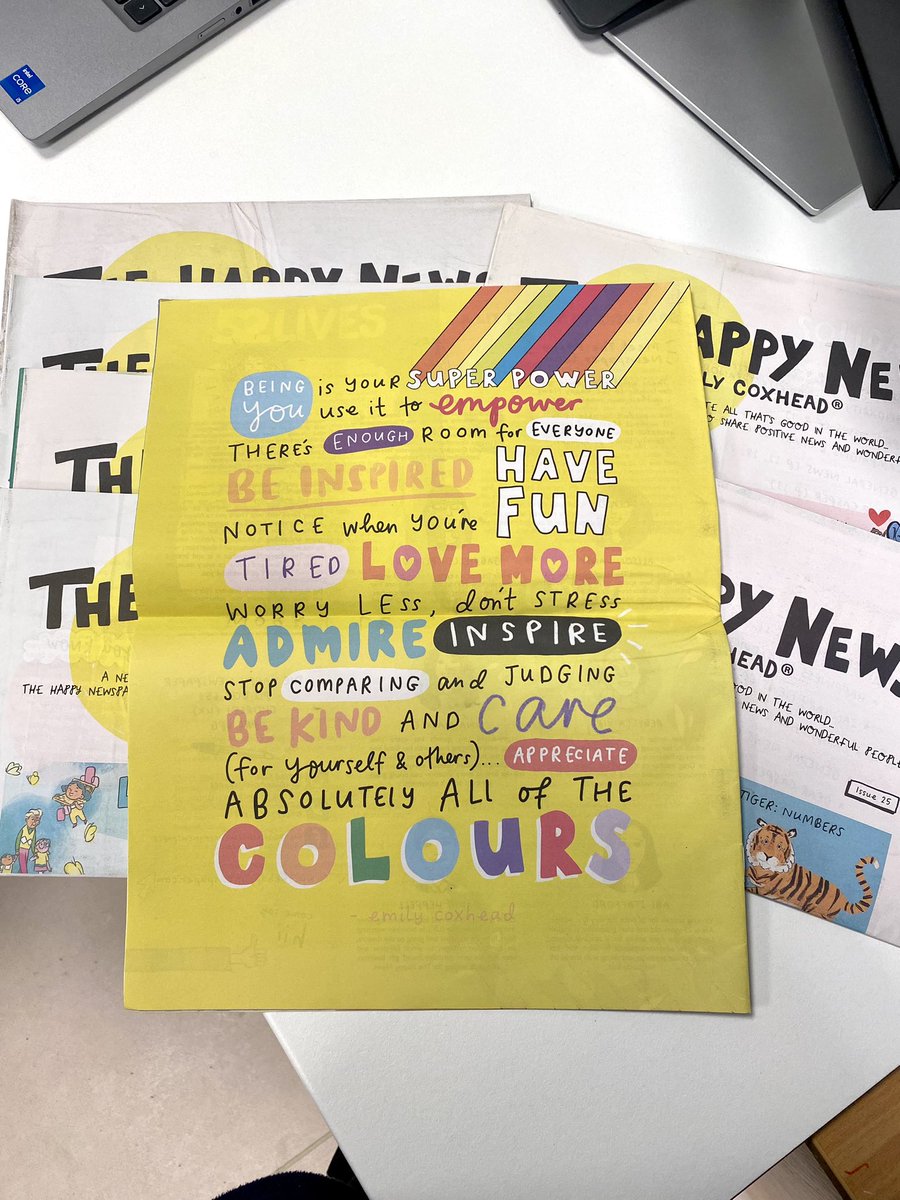 intel
CORE
i5
THE HAPPY NEWS
THE
THE
THE
A NE
THE HAPPY NEWSPA
LIVES
BEING YOU is your SUPER POWER
use it to empower
THERE'S ENOUGH ROOM for EVERYONE
BE INSPIRED HAVE FUN
NOTICE when you're
TIRED LOVE MORE
WORRY LESS, don't STRESS
ADMIRE INSPIRE
STOP COMPARING and JUDGING
BE KIND AND care
(for yourself & others)... APPRECIATE
ABSOLUTELY ALL of THE
COLOURS
- emily coxhead
APPY NEW
LY COXHEAD®
E ALL THAT'S GOOD IN THE WORLD_
O SHARE POSITIVE NEWS AND WONDERF
PY NEWS
HEAD®
OOD IN THE WORLD_
NEWS AND WONDERFUL PEOPLE
Issue 25
TIGER: NUMBERS